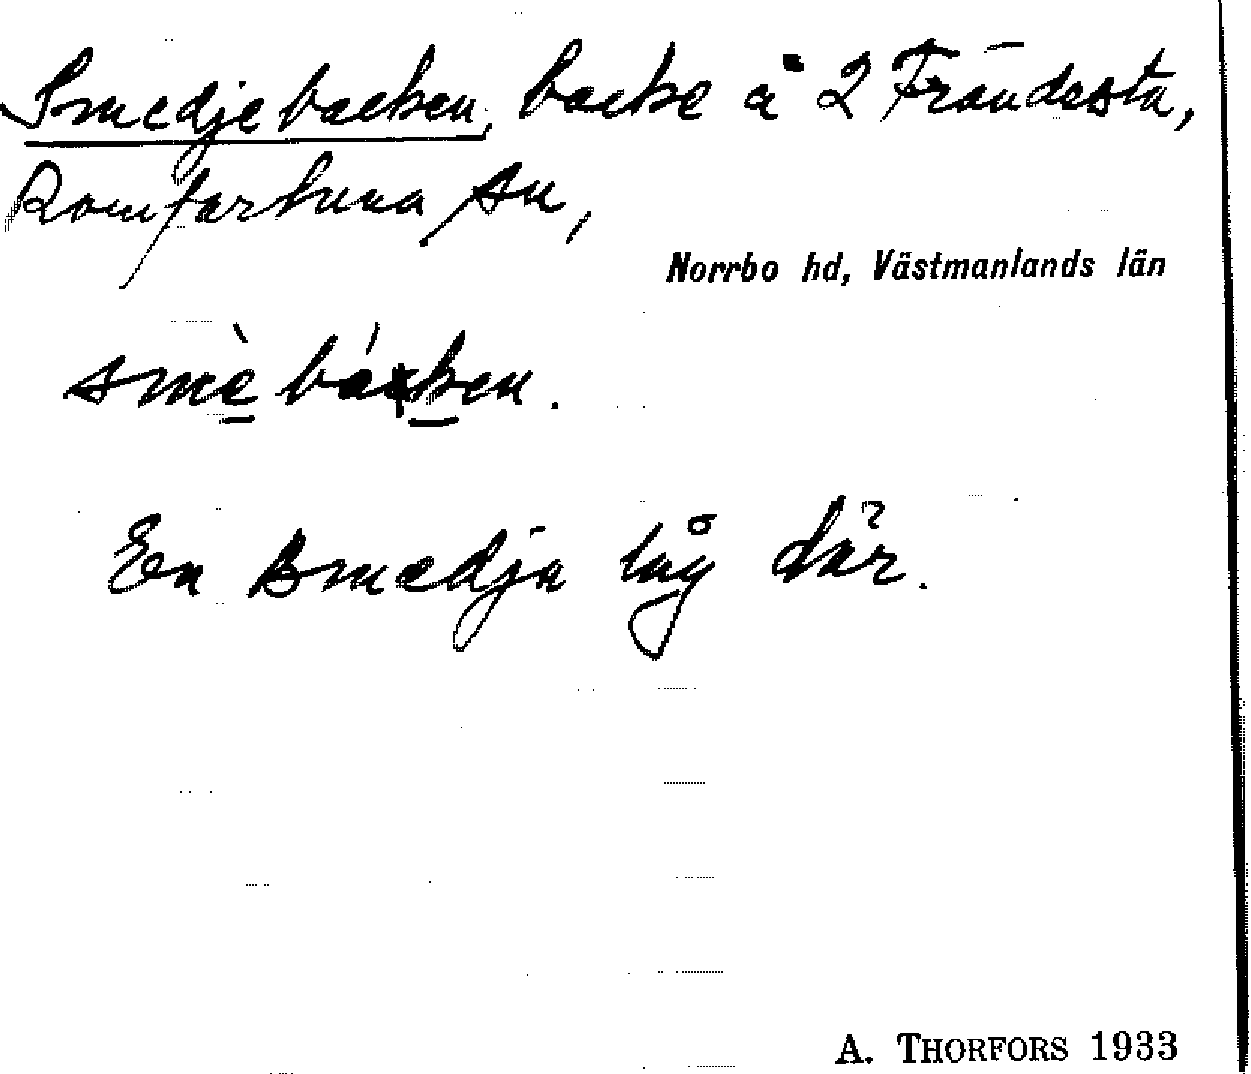 Smedjebacken, backe å 2 Frändesta,
Romfartuna sn,
Norrbo hd, Västmanlands län
smèbácken.
En smedja låg där.
A. THORFORS 1933